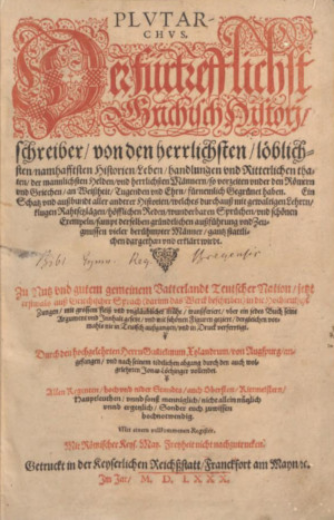 PLVTAR-
CHVS.
Der fürtrefflichst
Grichisch History/
schreiber/ von den herrlichsten/ löblich-
sten/ namhafftsten Historien/ Leben/ handlungen vnd Ritterlichen tha-
ten/ der mannlichsten Helden/ vnd herrlichsten Männern/ so vorzeiten vnder den Römern
vnd Griechen/ an Weißheit/ Tugenden vnd Ehrn/ fürnemlich Gegrünet haben. Ein
Schatz vnd außbundt aller anderer Historien/ welches durchauß mit gewaltigen Lehren/
klugen Rahtschlägen/ höfflichen Reden/ wunderbaren Sprüchen/ vnd schönen
Exempeln/ sampt derselben gründtlichen außführung vnd Zeug-
nussen vieler berühmpter Männer/ gantz stattli-
chen dargethan vnd erklärt wirdt.
Bibl.
Zu Nutz vnd gutem gemeinem Vatterlandt Teutscher Nation/ jetzt
auß Griechischer Sprach/ darinn das Werck beschrieben/ in die Hochteutsche
Zungen/ mit grossem fleiß vnd vnglaublicher mühe/ transferiert/ vber ein jedes Buch seine
Argument vnd Innhalt gesetzt/ vnd mit schönen Figuren geziert/ dergleichen vor-
mahls nie in Teutsch außgangen/ vnd in Druck verfertigt.
Durch den hochgelehrten Herrn Guilielmum Xylandrum von Augspurg/ an-
gefangen/ vnd nach seinem tödtlichen abgang durch den auch wol-
gelehrten Jonas Löchinger vollendet.
Allen Regenten/ hoch vnd nider Standts/ auch Obersten/ Rittmeistern/
Hauptleuthen/ vnnd sonst menniglich/ nicht allein nützlich
vnnd ergetzlich/ Sonder auch zuwissen
hochnotwendig.
Mit einem vollkommenen Register.
Mit Römischer Keys. May. Freyheit nicht nachzutrucken.
Getruckt in der Keyserlichen Reichßstatt/ Franckfort am Mayn/ ꝛc.
Im Jar/ M. D. LXXX.